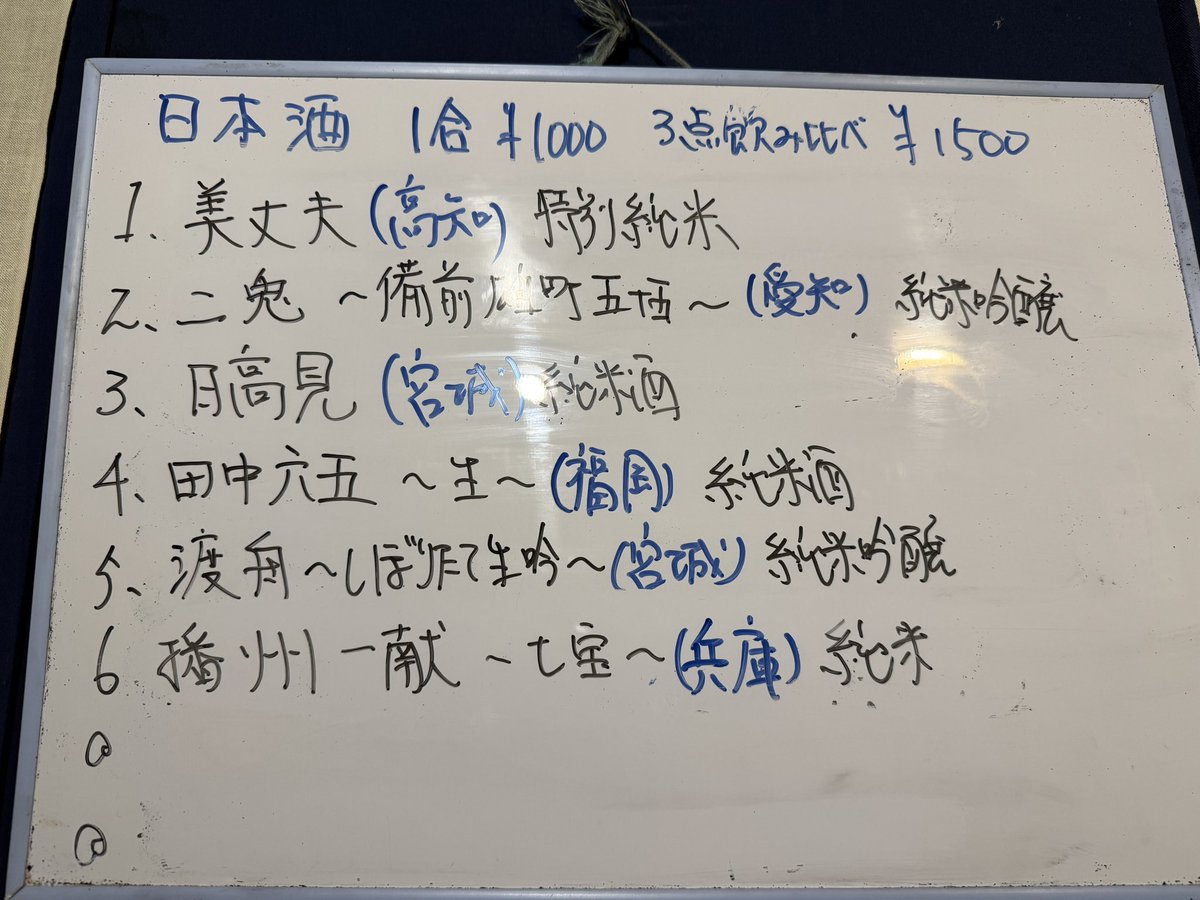 日本酒 1合 ¥1000 3点飲み比べ ¥1500
1、美丈夫(高知) 特別純米
2、二兎 ~備前雄町五十五~(愛知) 純米吟醸
3、日高見(宮城)純米酒
4、田中六五 ~生~(福岡) 純米酒
5、渡舟~しぼりたて生吟~(宮城) 純米吟醸
6 播州一献 ~七宝~(兵庫) 純米